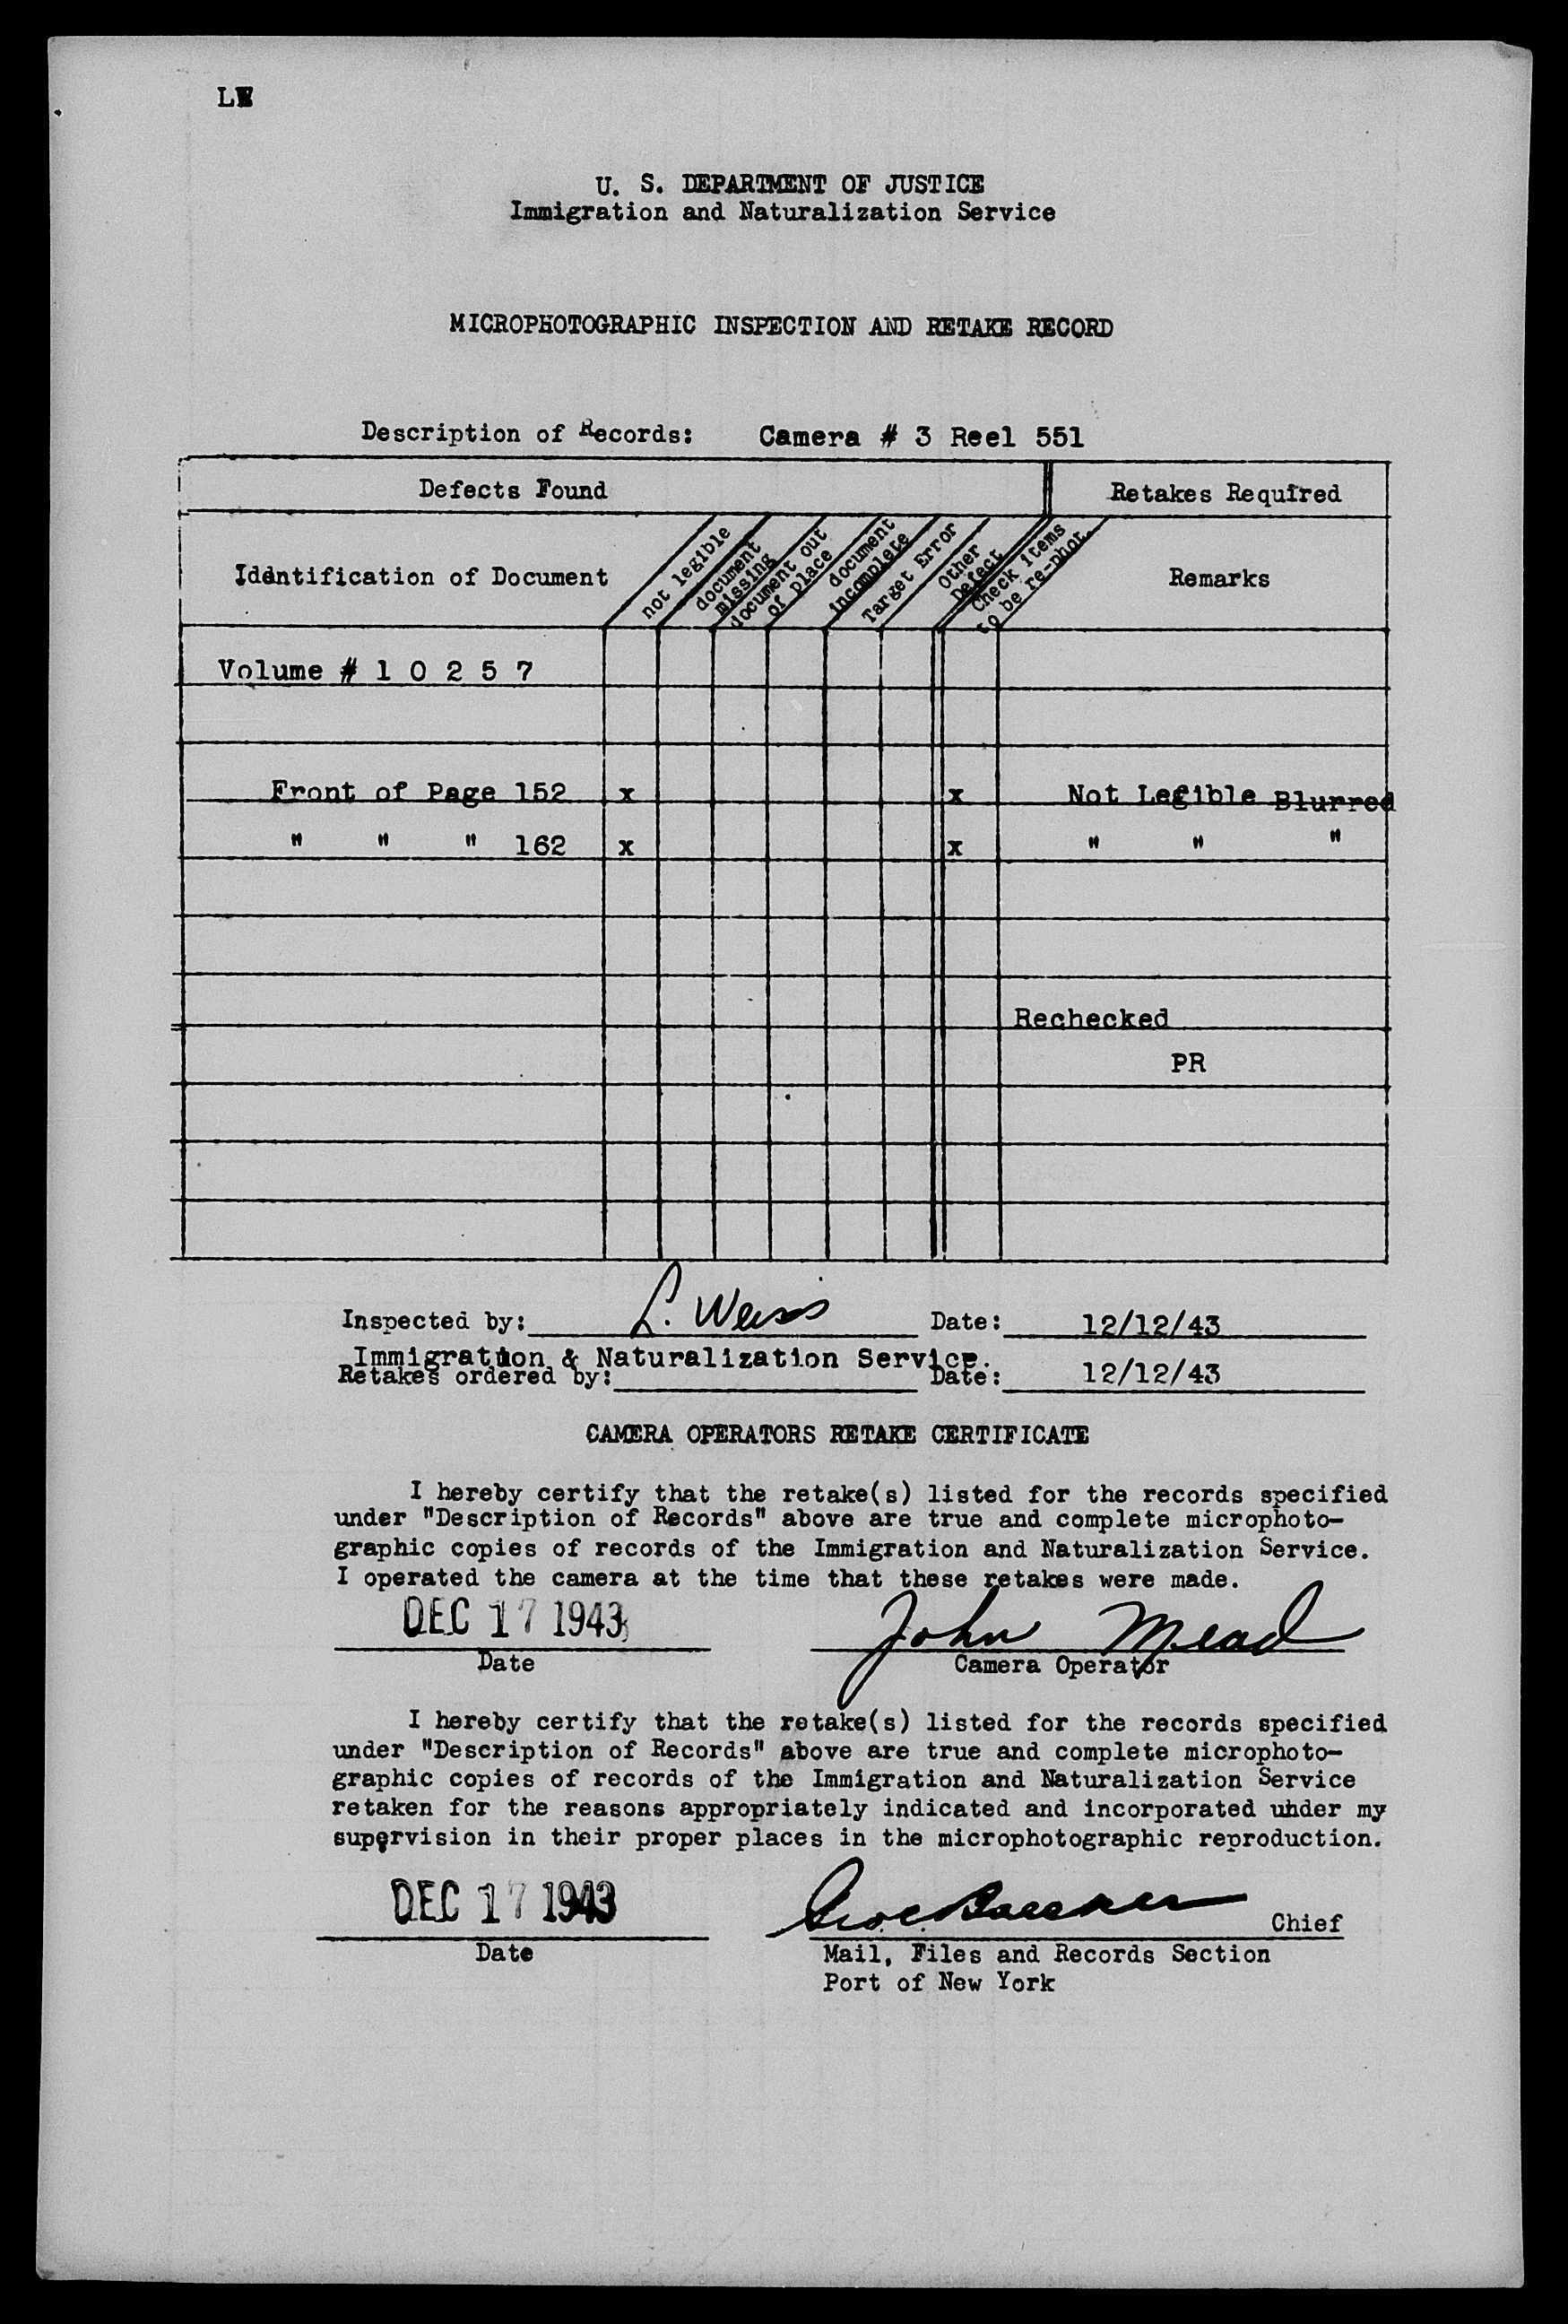 U. S. DEPARTMENT OF JUSTICE
Immigration and Naturalization Service
MICROPHOTOGRAPHIC INSPECTION AND RETAKE RECORD
Description of Records: Camera # 3 Reel 551
Defects Found Retakes Required
Identification of Document
not legible
document
missing
document out
of place
document
incomplete
Target Error
Other
Defect
Check items
to be re-phot.
Remarks
Volume # 1 0 2 5 7
Front of Page 152 x x Not Legible Blurred
" " " 162 x x " " "
Rechecked
PR
Inspected by: L. Weiss Date: 12/12/43
Immigration & Naturalization Service.
Retakes ordered by: Date: 12/12/43
CAMERA OPERATORS RETAKE CERTIFICATE
I hereby certify that the retake(s) listed for the records specified
under "Description of Records" above are true and complete microphoto-
graphic copies of records of the Immigration and Naturalization Service.
I operated the camera at the time that these retakes were made.
DEC 17 1943 John Mead
Date Camera Operator
I hereby certify that the retake(s) listed for the records specified
under "Description of Records" above are true and complete microphoto-
graphic copies of records of the Immigration and Naturalization Service
retaken for the reasons appropriately indicated and incorporated uhder my
supervision in their proper places in the microphotographic reproduction.
DEC 17 1943 Chief
Date Mail, Files and Records Section
Port of New York